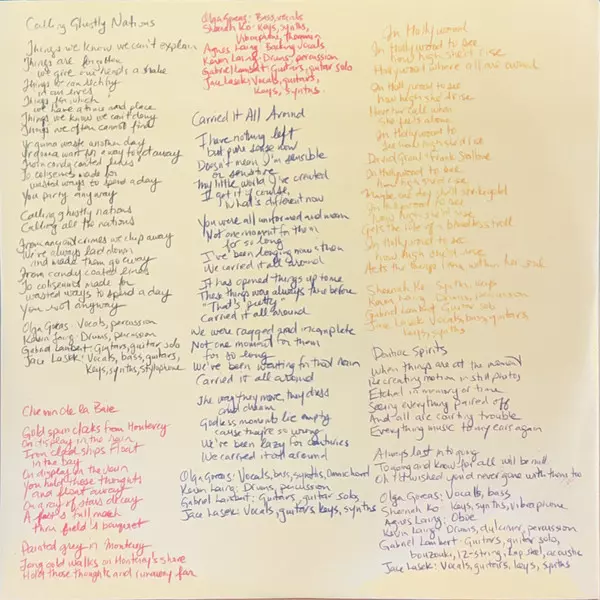 Calling Ghostly Nations
Things we know we can't explain
Things are forgotten
we give our heads a shake
Things we can
in our lives
Things for which
we have a time and place
Things we know we can't deny
Things we often cannot find
Yr gunna waste another day
Yr gunna want far away to get away
From candy coated lines
To coliseums made for
wasted ways to spend a day
You party anyway
Calling ghostly nations
Calling all the nations
From any and crimes we chip away
We've always laid down
and made them go away
From candy coated lines
To coliseums made for
wasted ways to spend a day
You not anyway
Olga Goreas: Vocals, percussion
Kevin Laing: Drums, percussion
Gabriel Lambert: Guitars, guitar solo
Jace Lasek: Vocals, bass, guitars,
Keys, synths, stylophone
Chemin de la Baie
Gold spun cloaks from Monterey
On display in the
Iron clad ships float
in the bay
On display in the
You hold these thoughts
and float away
On a ray of stars decay
A full
thru field's bouquet
Painted grey in Monterey
Long cold walks on Monterey's shore
Hold those thoughts and run away far
Olga Goreas: Bass, vocals
Sheenah Ko: Keys, synths,
Vibraphone,
Agnes Laing: Backing vocals
Kevin Laing: Drums, percussion
Gabriel Lambert: Guitars, guitar solo
Jace Lasek: Vocals, guitars,
Keys, synths
Carried It All Around
I have nothing left
but pure sense now
Doesn't mean I'm sensible
or sensitive
My little world I've created
I get it of course,
What's different now
You were all uniformed and worn
Not one moment for them
for so long
I've been longing now
We carried it all around
It has opened things up to me
These things were always there before
"That's pretty"
Carried it all around
We were ragged and incomplete
Not one moment for them
for so long
We've been waiting for that
Carried it all around
The way they move, they dress
and dream
Godless moments lie empty
cause they're so wrong
We've been lazy for centuries
We carried it all around
Olga Goreas: Vocals, bass, synths, Omnichord
Kevin Laing: Drums, percussion
Gabriel Lambert: Guitars, guitar solos
Jace Lasek: Vocals, guitars, keys, synths
In Hollywood
In Hollywood to see
how high she'd rise
Hollywood where all are
In Hollywood to see
how high she'd rise
her call when
she feels alone
In Hollywood to
see how high she'd rise
David Geral Frank
In Hollywood to see
how high she'd rise
Maybe
to see
how high she'd rise
Gets the role of a
In Hollywood to see
how high she'd rise
Acts the things long within her soul
Sheenah Ko: Synth, keys
Kevin Laing: Drums, percussion
Gabriel Lambert: Guitar solo
Jace Lasek: Vocals, bass, guitars,
keys, synths
Spirits
When things are at the
Recreating motion in still photos
Etched in memory or time
Seeing everything paired off
And all are courting trouble
Everything music to my ears again
Always last in
and know for all will be
Oh I thwished you'd never gone with them too
Olga Goreas: Vocals, bass
Sheenah Ko: Keys, synths, vibraphone
Agnes Laing: Oboe
Kevin Laing: Drums, dulcimer, percussion
Gabriel Lambert: Guitars, guitar solo,
bouzouki, 12-string, lap steel, acoustic
Jace Lasek: Vocals, guitars, keys, synths